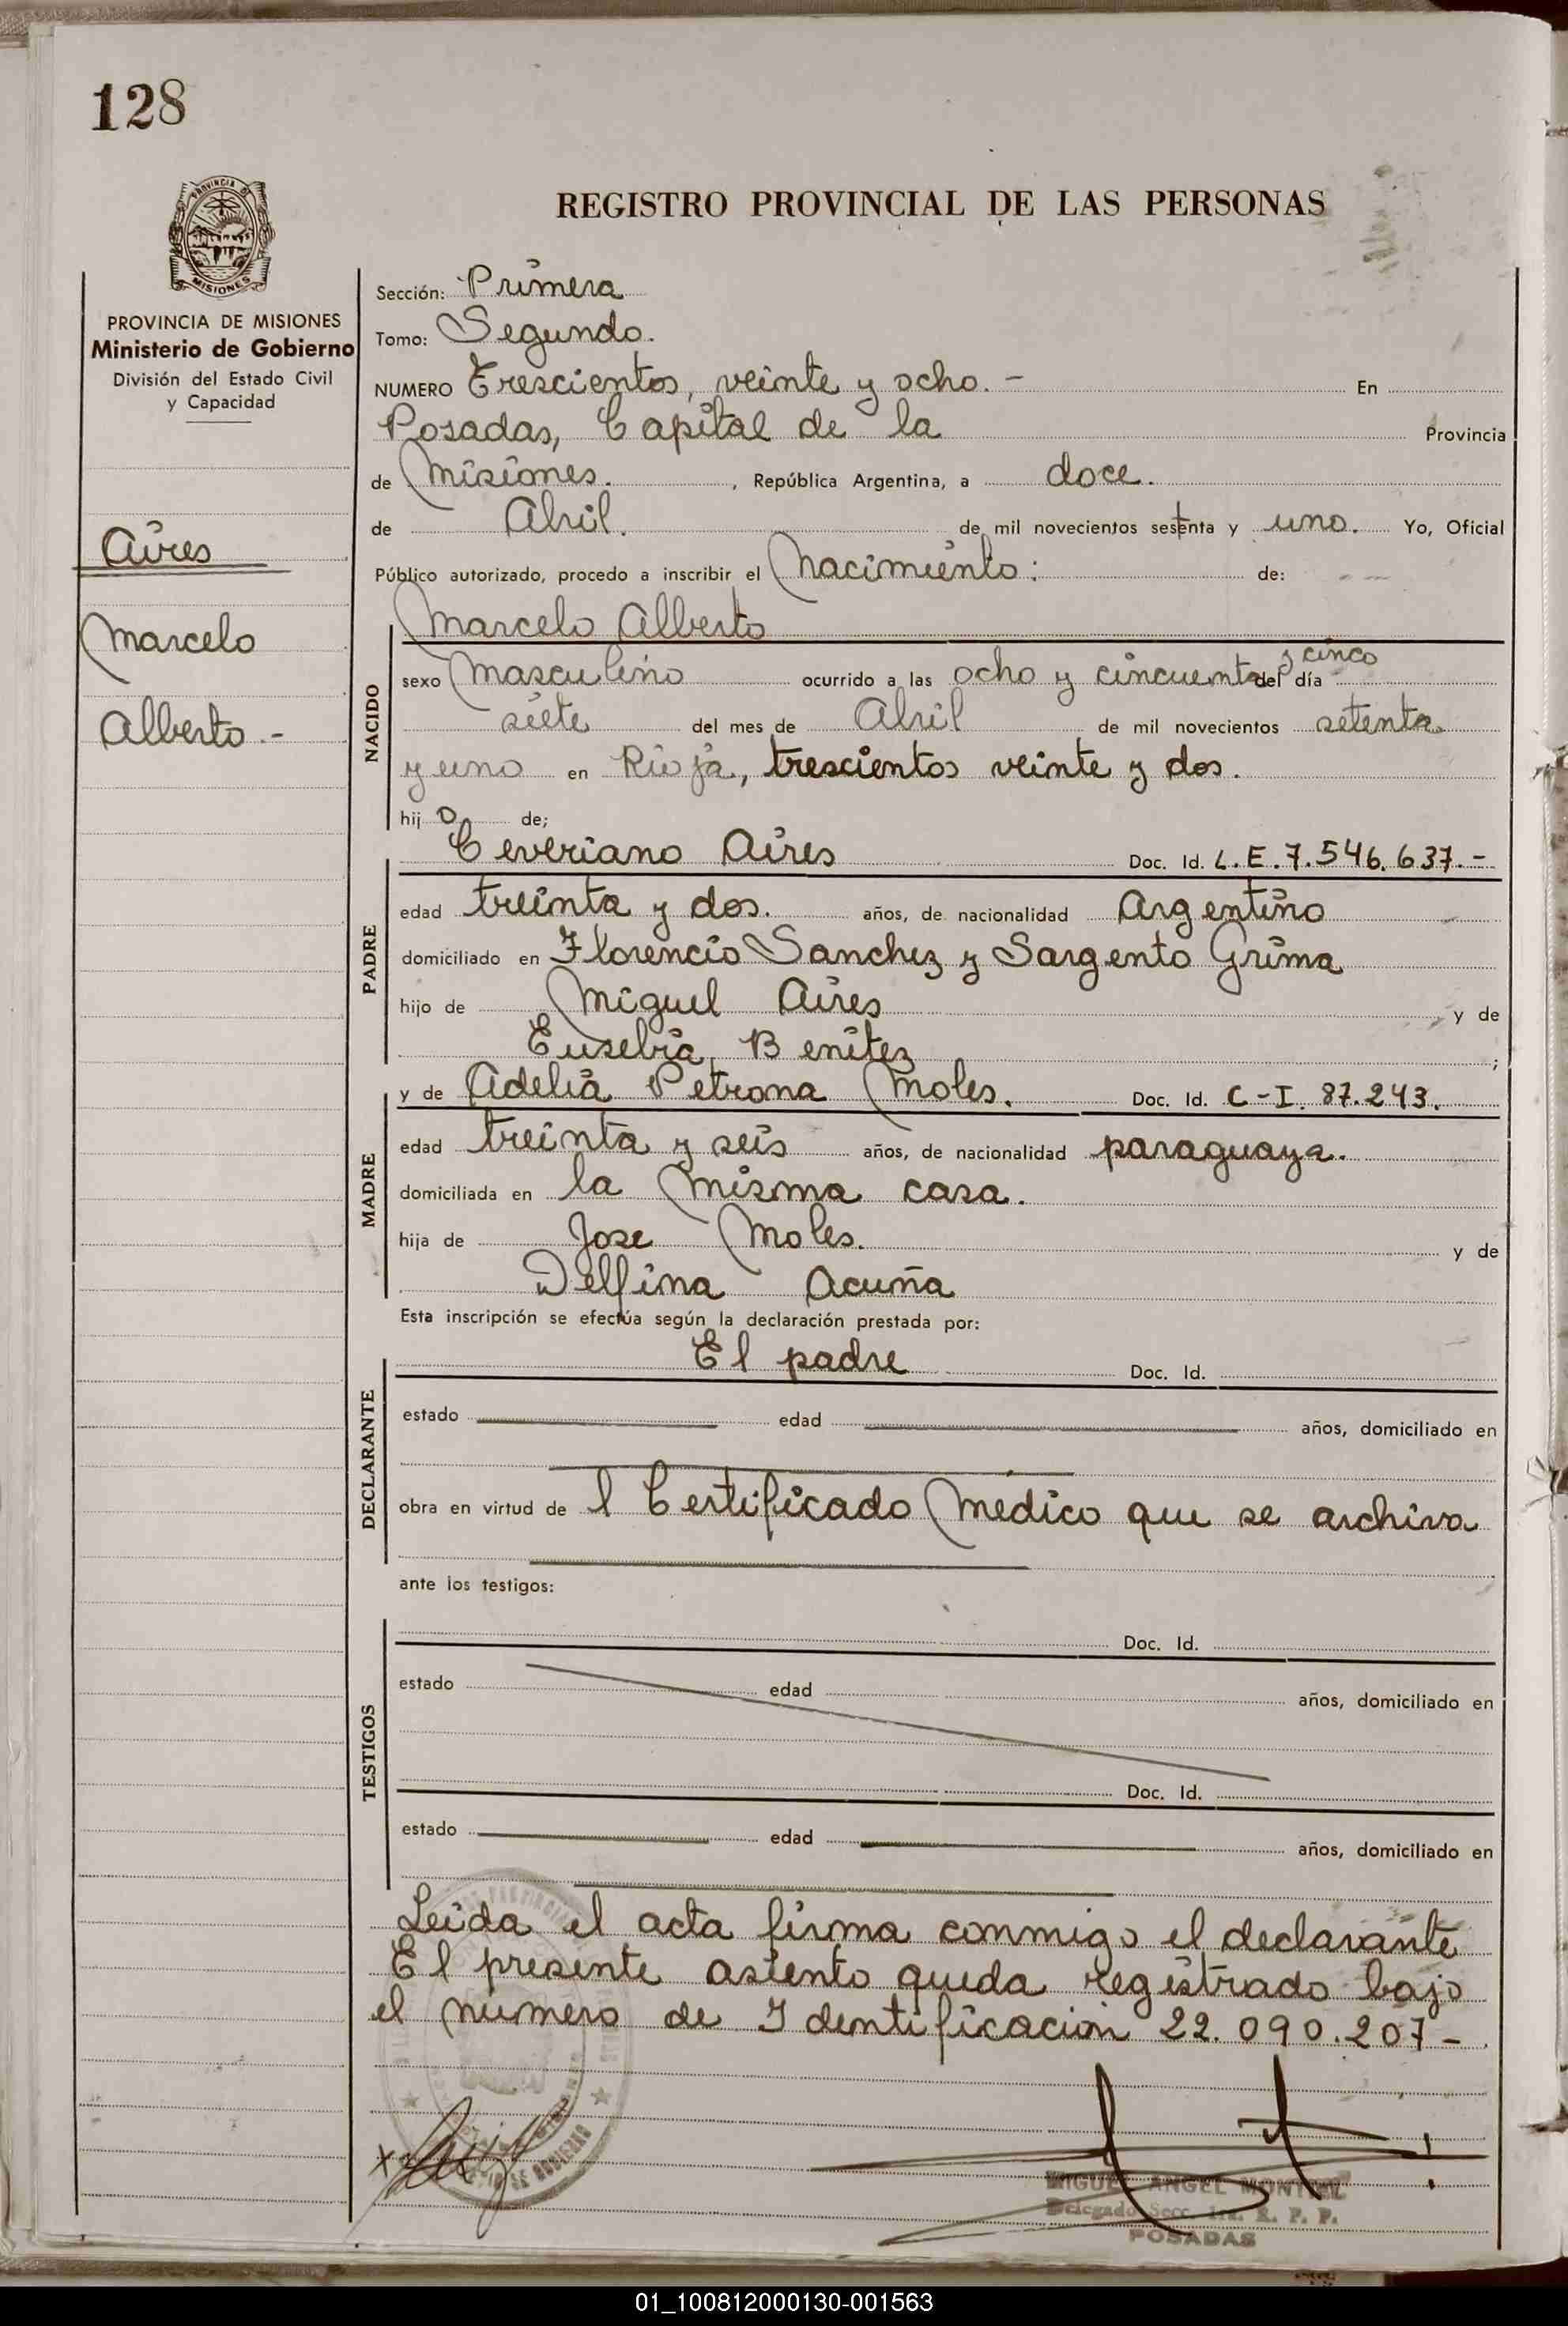 128
PROVINCIA DE
MISIONES
REGISTRO PROVINCIAL DE LAS PERSONAS
PROVINCIA DE MISIONES
Ministerio de Gobierno
División del Estado Civil
y Capacidad
Aires
Marcelo
Alberto.-
Sección: Primera
Tomo: Segundo.
NUMERO Trescientos, veinte y ocho. - En
Posadas, Capital de la Provincia
de Misiones. , República Argentina, a doce.
de Abril. de mil novecientos setenta y uno. Yo, Oficial
Público autorizado, procedo a inscribir el Nacimiento: de:
Marcelo Alberto
NACIDO
y cinco
sexo Masculino ocurrido a las ocho y cincuenta del día
siete del mes de Abril de mil novecientos setenta
y uno en Rioja, trescientos veinte y dos.
hij o de;
Ceveriano Aires Doc. Id. L.E.7.546.637.-
PADRE
edad treinta y dos. años, de nacionalidad Argentino
domiciliado en Florencio Sanchez y Sargento Grima
hijo de Miguel Aires y de
Eusebia, Benitez ;
y de Adelia Petrona Moles. Doc. Id. C-I. 87.243.
MADRE
edad treinta y seis años, de nacionalidad paraguaya.
domiciliada en la misma casa.
hija de Jose Moles. y de
Delfina Acuña
Esta inscripción se efectúa según la declaración prestada por:
El padre Doc. Id.
DECLARANTE
estado edad años, domiciliado en
obra en virtud de l Certificado Medico que se archiva
ante los testigos:
Doc. Id.
TESTIGOS
estado edad años, domiciliado en
Doc. Id.
estado edad años, domiciliado en
Leida el acta firma conmigo el declarante
El presente asiento queda registrado bajo
el número de Identificación 22.090.207-
MIGUEL ANGEL MONTIEL
Delegado Secc. 1ra. R. P. P.
POSADAS
01_100812000130-001563